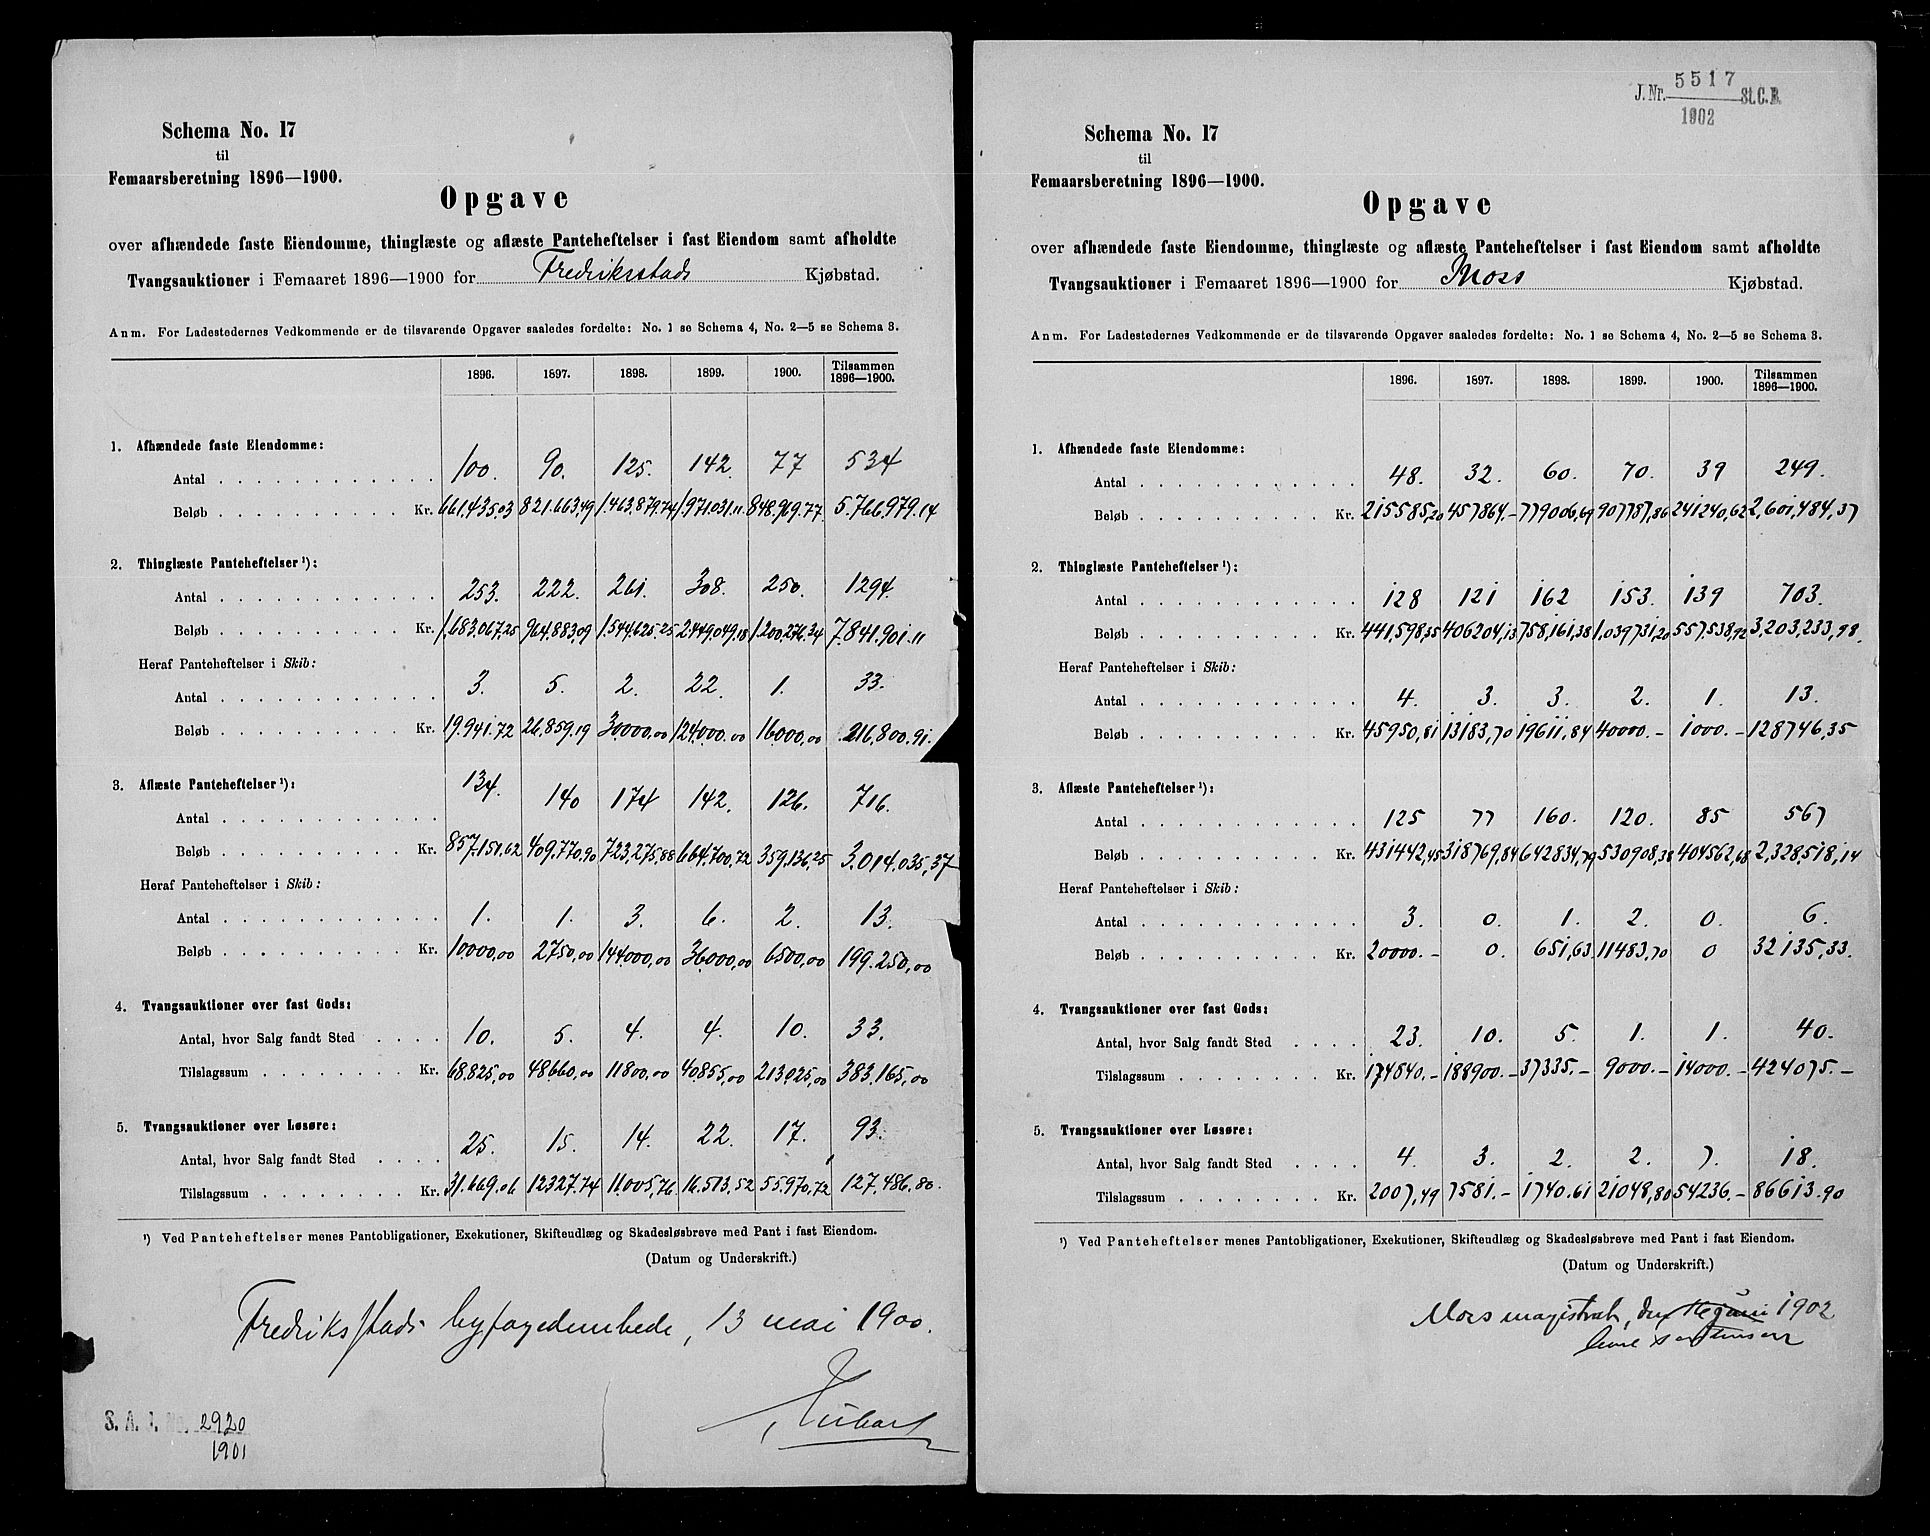 Schema No. 17
til
Femaarsberetning 1896—1900.
Opgave
over afhændede faste Eiendomme, thinglæste og aflæste Panteheftelser i fast Eiendom samt afholdte
Tvangsauktioner i Femaaret 1896—1900 for Fredriksstads Kjøbstad.
Anm. For Ladestedernes Vedkommende er de tilsvarende Opgaver saaledes fordelte: No. 1 se Schema 4, No. 2—5 se Schema 3.
1896. 1897. 1898. 1899. 1900. Tilsammen 1896—1900.
1. Afhændede faste Eiendomme:
Antal 100. 90. 125. 142. 77 534
Beløb Kr. 661,435.03 821.663,49 1.463.879.74 1.971.031.11 848.969.77. 5.766,979.14
2. Thinglæste Panteheftelser¹):
Antal 253. 222. 261. 308. 250. 1294.
Beløb Kr. 1,683.067,25 964.883,09 1.544.625.25 2.449.049.18 1.200.276.34 7.841.901.11
Heraf Panteheftelser i Skib:
Antal 3. 5. 2. 22. 1. 33.
Beløb Kr. 19.941.72 26.859.19 30000,00 124000.00 16000,00 216,800.91.
3. Aflæste Panteheftelser¹):
Antal 134. 140 174 142. 126. 716.
Beløb Kr. 857.151.62 409.770.90 723,275,88 664.700,72 359.136,25 3.014.035,37
Heraf Panteheftelser i Skib:
Antal 1. 1. 3. 6. 2. 13.
Beløb Kr. 10000,00 2750,00 144000,00 36000,00 6500,00 199.250,00
4. Tvangsauktioner over fast Gods:
Antal, hvor Salg fandt Sted 10. 5. 4. 4. 10. 33.
Tilslagssum Kr. 68.825,00 48660,00 11800,00 40.855,00 213025,00 383.165,00
5. Tvangsauktioner over Løsøre:
Antal, hvor Salg fandt Sted 25. 15. 14. 22. 17. 93.
Tilslagssum Kr. 31.669.06 12327.74 11.005,76 16.513,52 55.970,72 127.486.80.
¹) Ved Panteheftelser menes Pantobligationer, Exekutioner, Skifteudlæg og Skadesløsbreve med Pant i fast Eiendom.
(Datum og Underskrift.)
Fredriksstads byfogedembede, 13 mai 1900.
S. A. J. No. 2920
1901
J. Nr. 5517 St. C. B.
1902
Schema No. 17
til
Femaarsberetning 1896—1900.
Opgave
over afhændede faste Eiendomme, thinglæste og aflæste Panteheftelser i fast Eiendom samt afholdte
Tvangsauktioner i Femaaret 1896—1900 for Moss Kjøbstad.
Anm. For Ladestedernes Vedkommende er de tilsvarende Opgaver saaledes fordelte: No. 1 se Schema 4, No. 2—5 se Schema 3.
1896. 1897. 1898. 1899. 1900. Tilsammen 1896—1900.
1. Afhændede faste Eiendomme:
Antal 48. 32. 60. 70. 39 249.
Beløb Kr. 215585,20 457864,- 779006,69 907787,86 241240,62 2,601,484,37
2. Thinglæste Panteheftelser¹):
Antal 128 121 162 153. 139 703.
Beløb Kr. 441,598,35 406204,13 758,161,38 1,039731,20 557,538,92 3,203,233,98.
Heraf Panteheftelser i Skib:
Antal 4. 3. 3. 2. 1. 13.
Beløb Kr. 45950,81 13183,70 19611,84 40000.- 1000.- 128746,35
3. Aflæste Panteheftelser¹):
Antal 125 77 160. 120. 85 567
Beløb Kr. 431442,45 318769,84 642834,79 530908,38 404562,68 2,328,518,14
Heraf Panteheftelser i Skib:
Antal 3. 0. 1. 2. 0. 6.
Beløb Kr. 20000.- 0. 651,63 11483,70 0 32135,33.
4. Tvangsauktioner over fast Gods:
Antal, hvor Salg fandt Sted 23. 10. 5. 1. 1. 40.
Tilslagssum Kr. 174840.- 188900.- 37335.- 9000.- 14000.- 424075.-
5. Tvangsauktioner over Løsøre:
Antal, hvor Salg fandt Sted 4. 3. 2. 2. 7. 18.
Tilslagssum Kr. 2007,49 7581.- 1740.61 21048,80 54236.- 86613.90
¹) Ved Panteheftelser menes Pantobligationer, Exekutioner, Skifteudlæg og Skadesløsbreve med Pant i fast Eiendom.
(Datum og Underskrift.)
Moss magistrat, den juni 1902